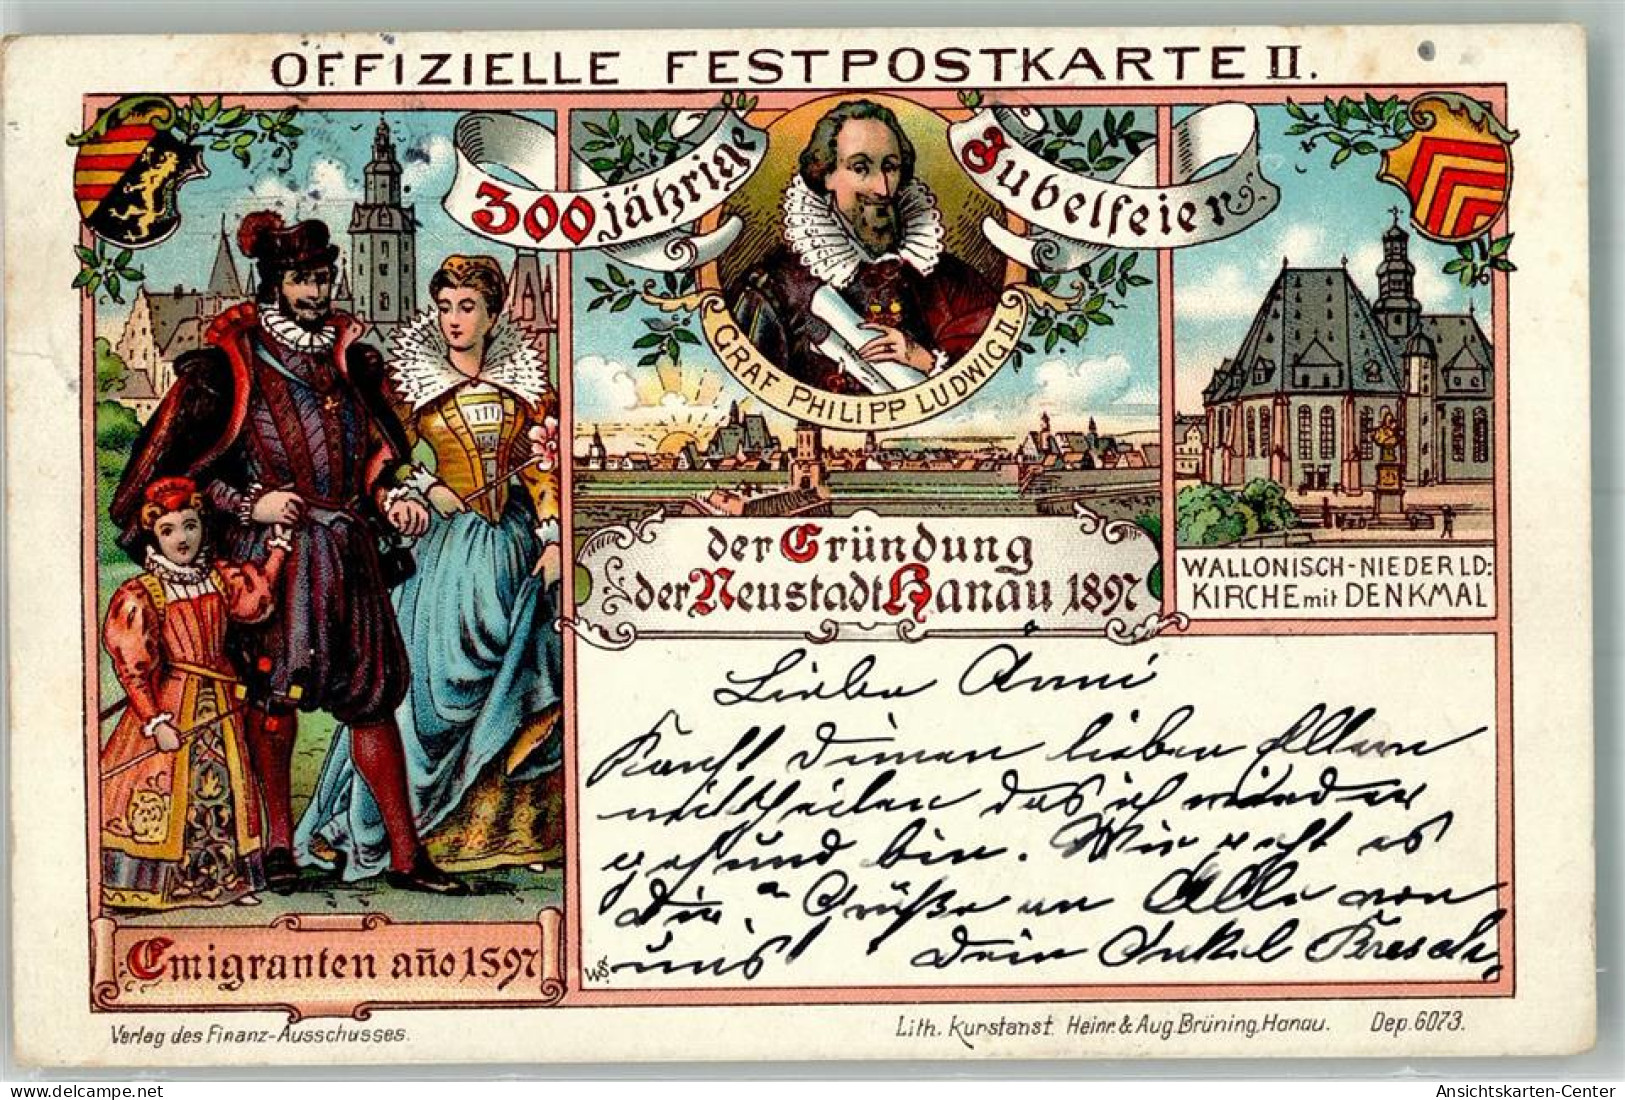 OFFIZIELLE FESTPOSTKARTE II.
300 jährige Jubelfeier
GRAF PHILIPP LUDWIG II.
der Gründung
der Neustadt Hanau 1897
WALLONISCH-NIEDERLD:
KIRCHE mit DENKMAL
Liebe Anni
Kannst Deinen lieben Eltern
mittheilen das ich wieder
gesund bin. Wie geht es
Dir. Grüße an Alle von
uns Dein Onkel
Emigranten año 1597
Verlag des Finanz-Ausschusses.
Lith. Kunstanst. Heinr. & Aug. Brüning, Hanau. Dep. 6073.
Ansichtskarten-Center